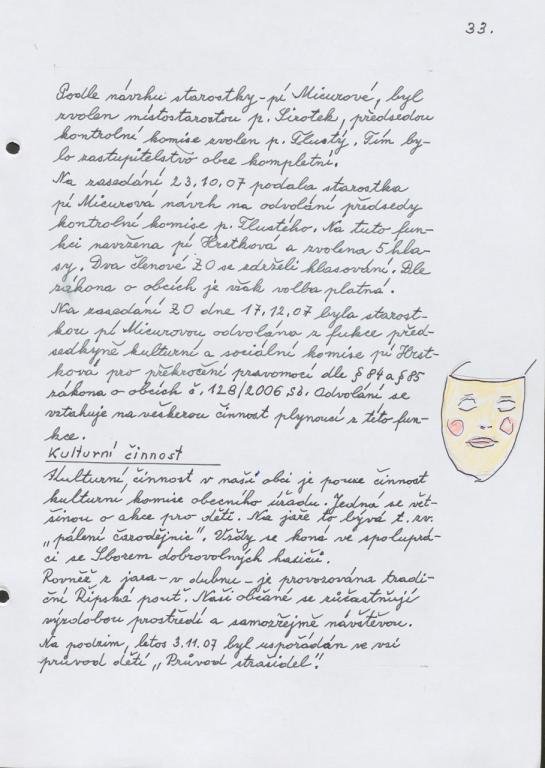 33.
Podle návrhu starostky - pí Micurové, byl
zvolen místostarostou p. Sirotek, předsedou
kontrolní komise zvolen p. Tlustý. Tím by-
lo zastupitelstvo obce kompletní.
Na zasedání 23.10.07 podala starostka
pí Micurova návrh na odvolání předsedy
kontrolní komise p. Tlustého. Na tuto fun-
kci navržena pí Hrstková a zvolena 5 hla-
sy. Dva členové ZO se zdrželi hlasování. Dle
zákona o obcích je však volba platná.
Na zasedání ZO dne 17.12.07 byla starost-
kou pí Micurovou odvolána z fukce před-
sedkyně kulturní a sociální komise pí Hrst-
ková pro překročení pravomocí dle § 84 a § 85
zákona o obcích č. 128/2006 Sb. Odvolání se
vztahuje na veškerou činnost plynoucí z této fun-
kce.
Kulturní činnost
Kulturní činnost v naší obci je pouze činnost
kulturní komise obecního úřadu. Jedná se vět-
šinou o akce pro děti. Na jaře to bývá t. zv.
„pálení čarodějnic". Vždy se koná ve spoluprá-
ci se Sborem dobrovolných hasičů.
Rovněž z jara - v dubnu - je provozována tradi-
ční Řípská pouť. Naši občané se zúčastňují
výzdobou prostředí a samozřejmě návštěvou.
Na podzim, letos 3.11.07 byl uspořádán ve vsi
průvod dětí „Průvod strašidel".